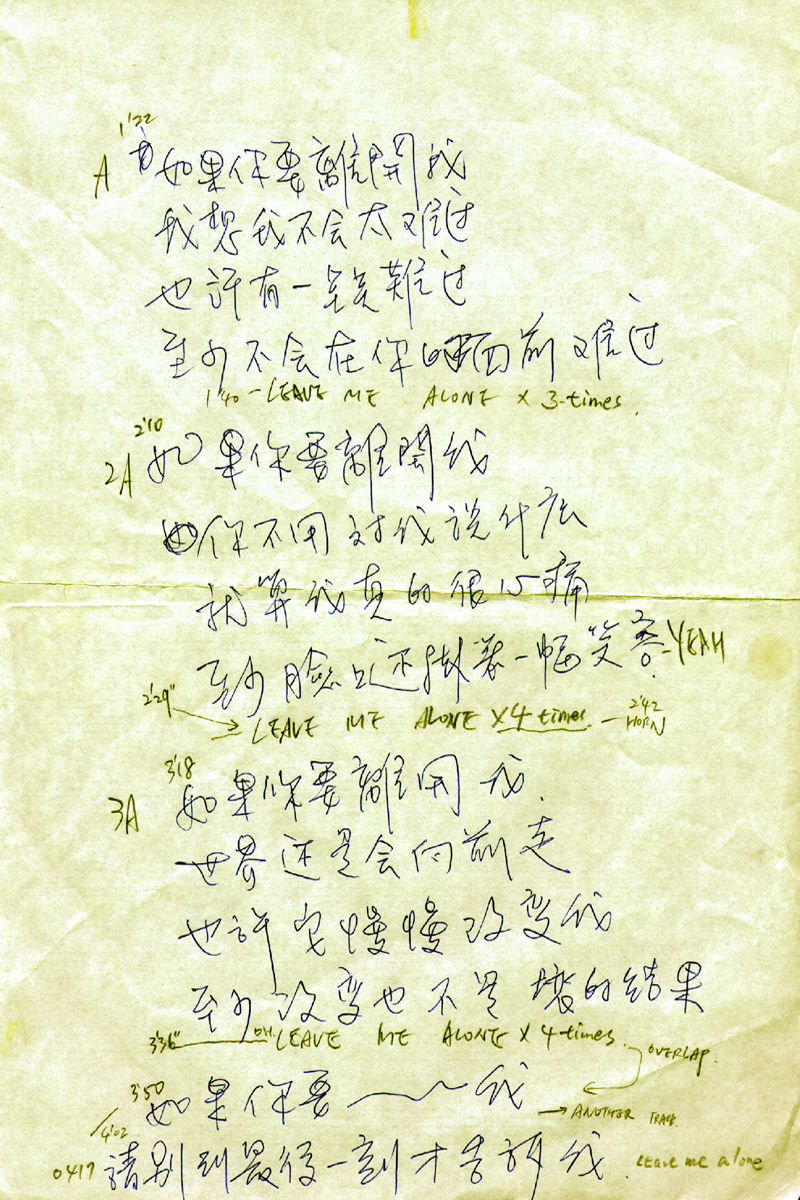 1'22
A 如果你要離開我
我想我不会太难过
也許有一些難过
至少不会在你的面前难过
1'40 - LEAVE ME ALONE × 3-times.
2'10
2A 如果你要離開我
你不用对我说什么
就算我真的很心痛
至少臉上还掛着一幅笑容-YEAH
2'29" → LEAVE ME ALONE × 4 times - 2'42 HORN
3'18
3A 如果你要離開我.
世界还是会向前走
也許它慢慢改变我
至少改变也不是壞的结果
3'36" OH. LEAVE ME ALONE × 4-times.
OVERLAP.
3'50
如果你要～～我 → ANOTHER TRACK
/4'02
0417 請别到最後一刻才告訴我. Leave me alone